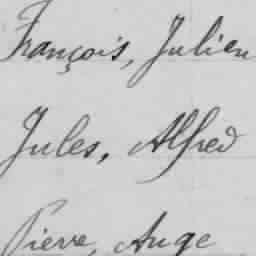 François, Julien
Jules, Alfred
Pierre, Ange